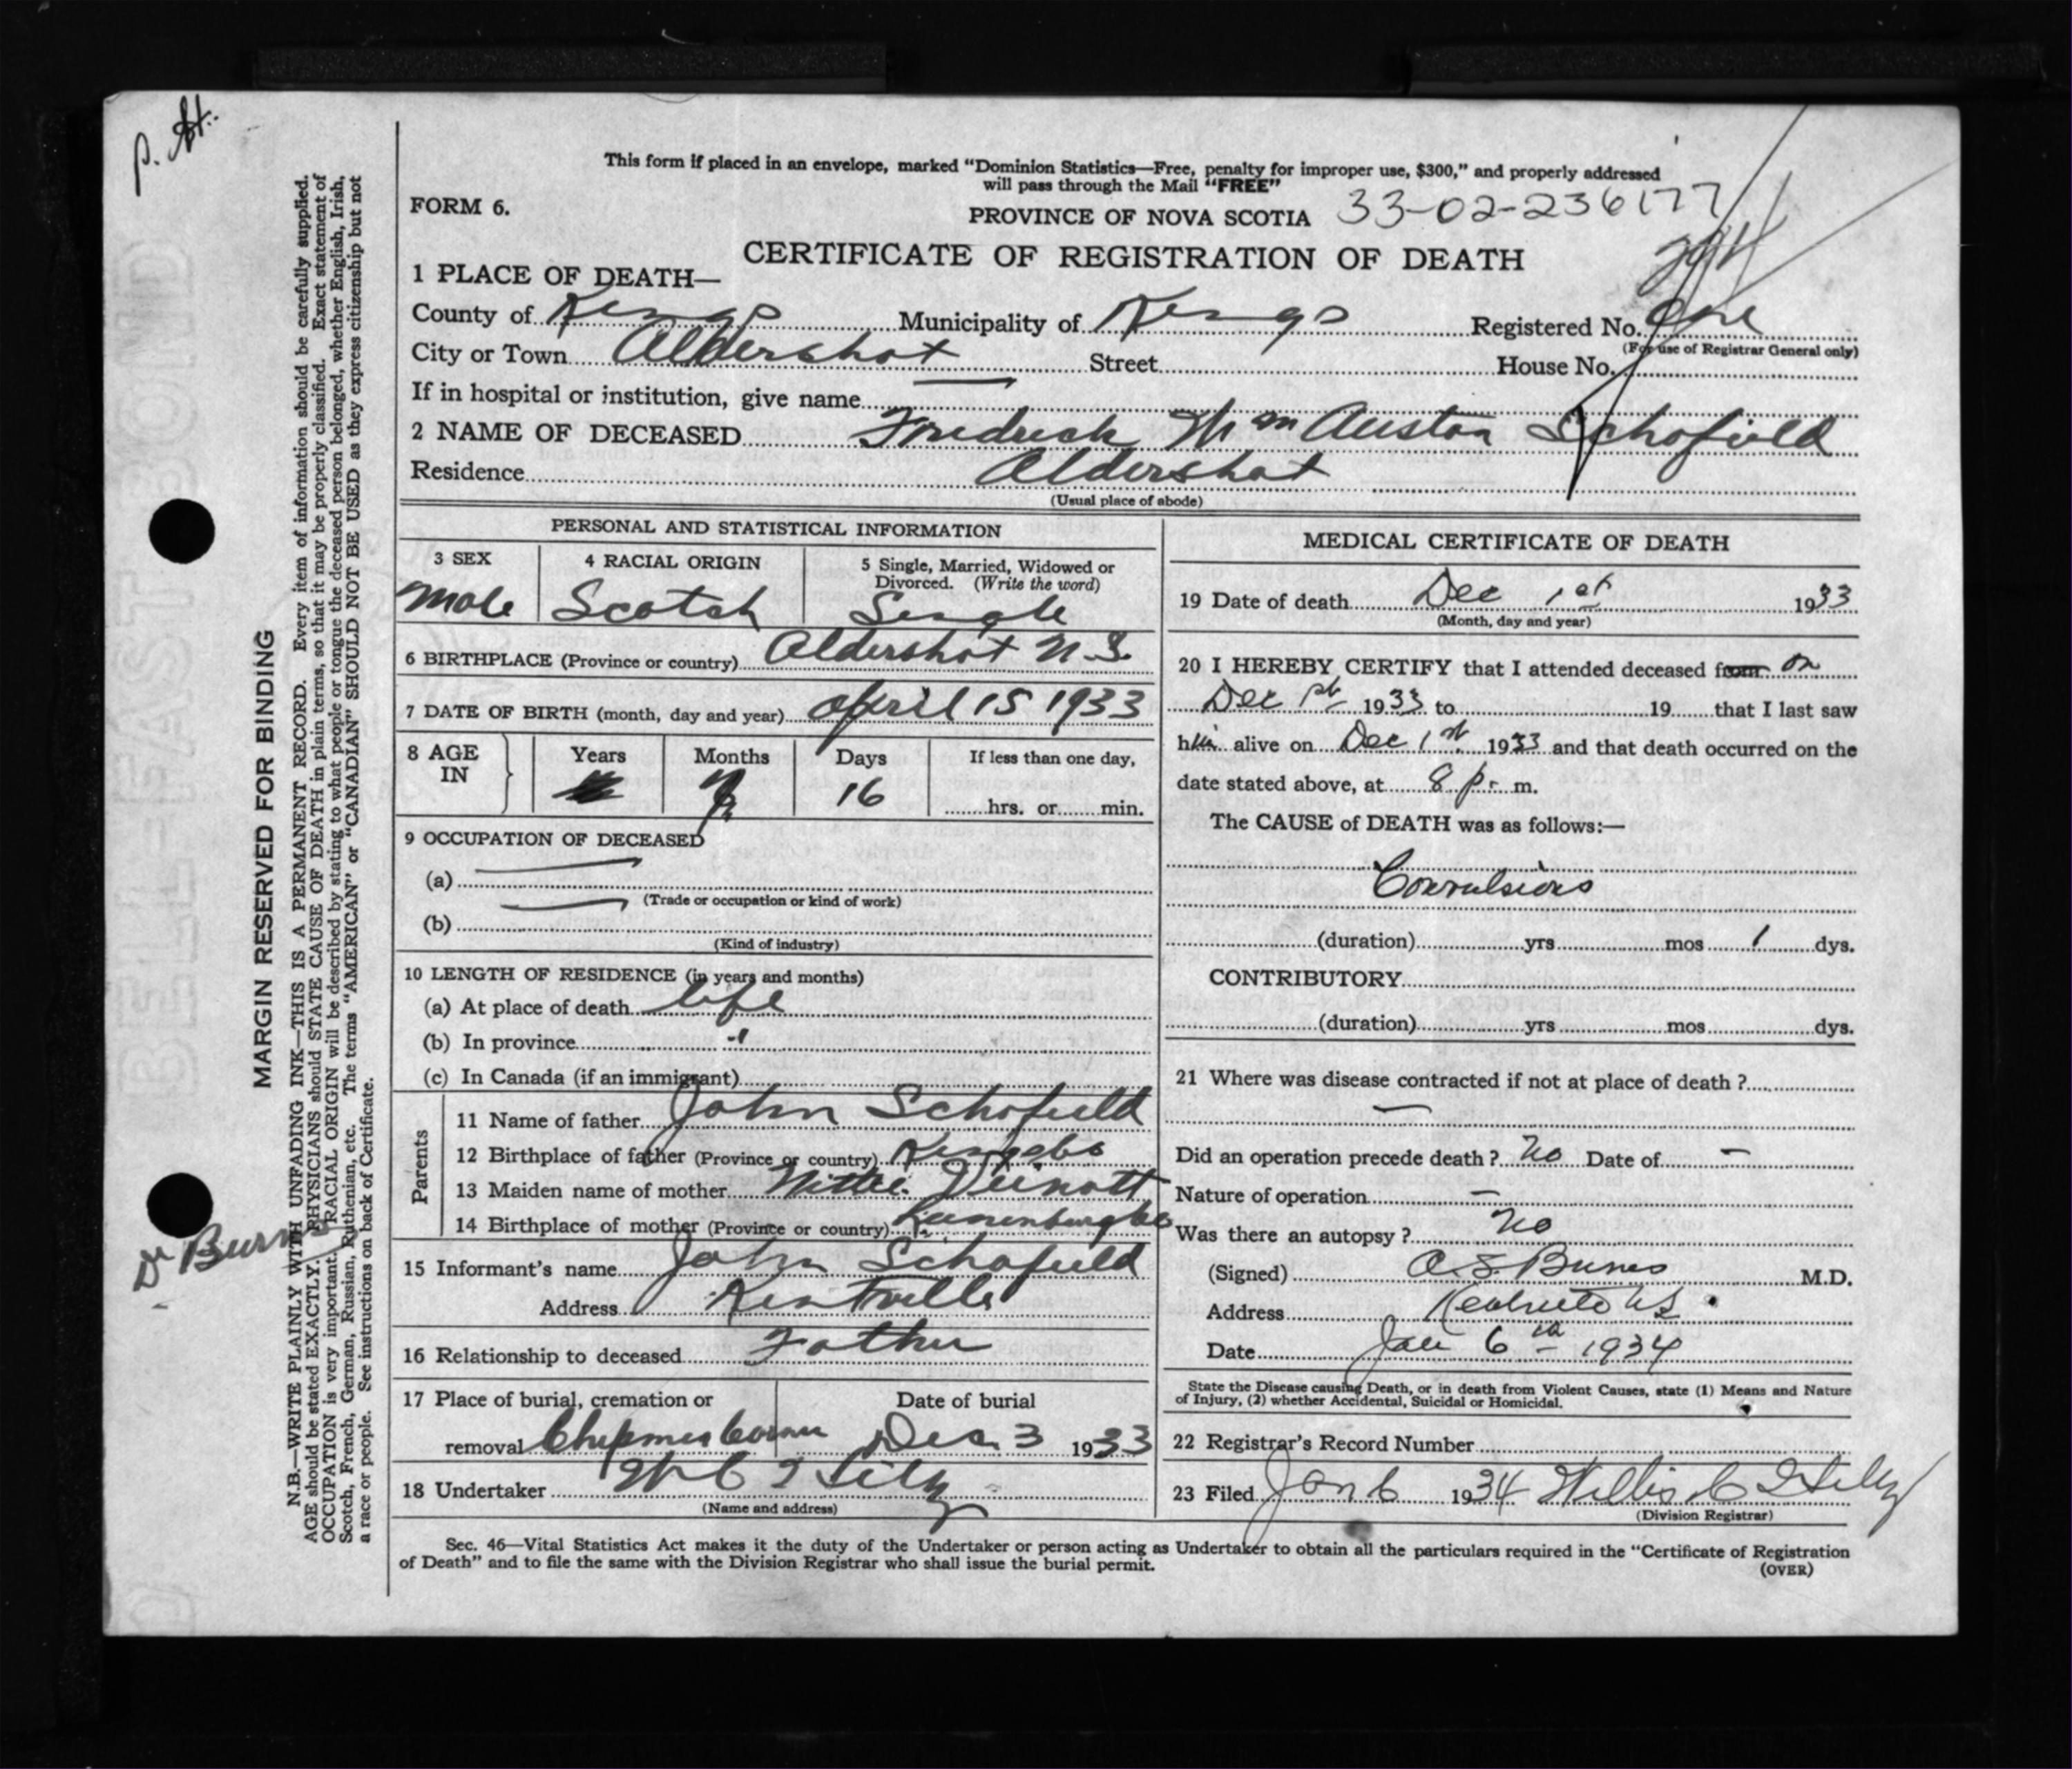 This form if placed in an envelope, marked "Dominion Statistics—Free, penalty for improper use, $300," and properly addressed
will pass through the Mail "FREE"
FORM 6.
PROVINCE OF NOVA SCOTIA 33-02-236177
CERTIFICATE OF REGISTRATION OF DEATH
1 PLACE OF DEATH—
County of Kings Municipality of Kings Registered No. One
(For use of Registrar General only)
City or Town Aldershot Street House No.
If in hospital or institution, give name —
2 NAME OF DECEASED Fredrick Wm Auston Schofield
Residence Aldershot
(Usual place of abode)
PERSONAL AND STATISTICAL INFORMATION
3 SEX 4 RACIAL ORIGIN 5 Single, Married, Widowed or
Divorced. (Write the word)
Male Scotch Single
6 BIRTHPLACE (Province or country) Aldershot N.S.
7 DATE OF BIRTH (month, day and year) April 15 1933
8 AGE IN Years Months Days If less than one day,
7 16 hrs. or min.
9 OCCUPATION OF DECEASED
(a) —
(Trade or occupation or kind of work)
(b) —
(Kind of industry)
10 LENGTH OF RESIDENCE (in years and months)
(a) At place of death life
(b) In province "
(c) In Canada (if an immigrant)
Parents
11 Name of father John Schofield
12 Birthplace of father (Province or country) Kings Co
13 Maiden name of mother Veinott
14 Birthplace of mother (Province or country) Lunenburg Co
15 Informant's name John Schofield
Address Kentville
16 Relationship to deceased Father
17 Place of burial, cremation or Date of burial
removal Chipman Corner Dec 3 1933
18 Undertaker W C Hiltz
(Name and address)
MEDICAL CERTIFICATE OF DEATH
19 Date of death Dec 1st 1933
(Month, day and year)
20 I HEREBY CERTIFY that I attended deceased from on
Dec 1st 1933 to 19 that I last saw
him alive on Dec 1st 1933 and that death occurred on the
date stated above, at 8 p. m.
The CAUSE of DEATH was as follows:—
Convulsions
(duration) yrs mos 1 dys.
CONTRIBUTORY
(duration) yrs mos dys.
21 Where was disease contracted if not at place of death ?
—
Did an operation precede death ? No Date of —
Nature of operation —
Was there an autopsy ? No
(Signed) A S Burns M.D.
Address Kentville NS
Date Jan 6th 1934
State the Disease causing Death, or in death from Violent Causes, state (1) Means and Nature
of Injury, (2) whether Accidental, Suicidal or Homicidal.
22 Registrar's Record Number
23 Filed Jan 6 1934 Willis C Hiltz
(Division Registrar)
Sec. 46—Vital Statistics Act makes it the duty of the Undertaker or person acting as Undertaker to obtain all the particulars required in the "Certificate of Registration
of Death" and to file the same with the Division Registrar who shall issue the burial permit.
(OVER)
MARGIN RESERVED FOR BINDING
N.B.—WRITE PLAINLY WITH UNFADING INK—THIS IS A PERMANENT RECORD. Every item of information should be carefully supplied.
AGE should be stated EXACTLY. PHYSICIANS should STATE CAUSE OF DEATH in plain terms, so that it may be properly classified. Exact statement of
OCCUPATION is very important. RACIAL ORIGIN will be described by stating to what people or tongue the deceased person belonged, whether English, Irish,
Scotch, French, German, Russian, Ruthenian, etc. The terms "AMERICAN" or "CANADIAN" SHOULD NOT BE USED as they express citizenship but not
a race or people. See instructions on back of Certificate.
Dr Burns
BELL-FAST BOND